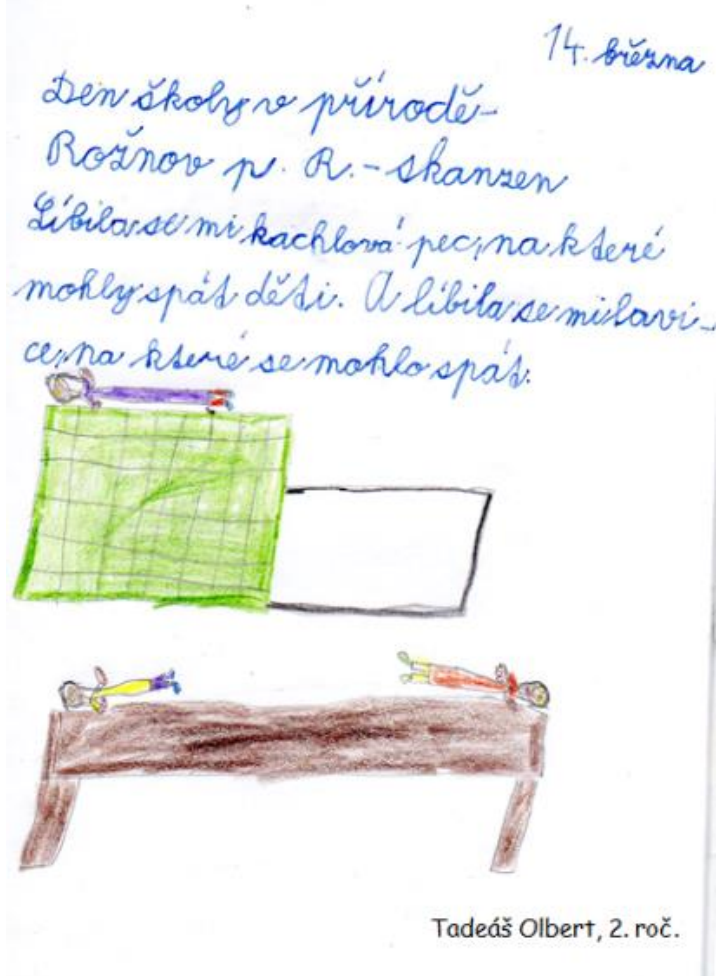 14. března
Den školy v přírodě-
Rožnov p. R. - skanzen
Líbila se mi kachlová pec, na které
mohly spát děti. A líbila se mi lavi-
ce, na které se mohlo spát.
Tadeáš Olbert, 2. roč.